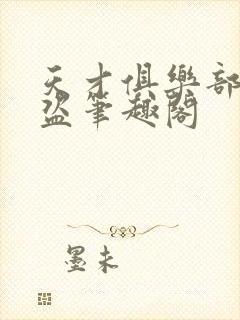 天才俱樂部
盜筆趣閣
墨未